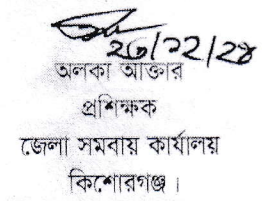 ২৩/১২/২৪
অলকা আক্তার
প্রশিক্ষক
জেলা সমবায় কার্যালয়
কিশোরগঞ্জ।